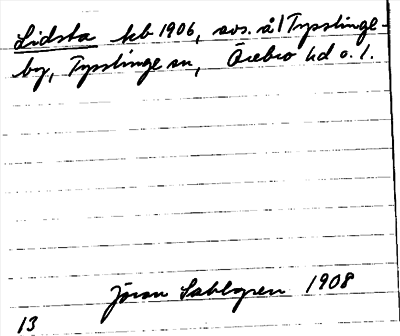 Lidsta kb 1906, avs. å l Tysslinge-
by, Tysslinge sn, Örebro hd o. l.
Jöran Sahlgren 1908
13